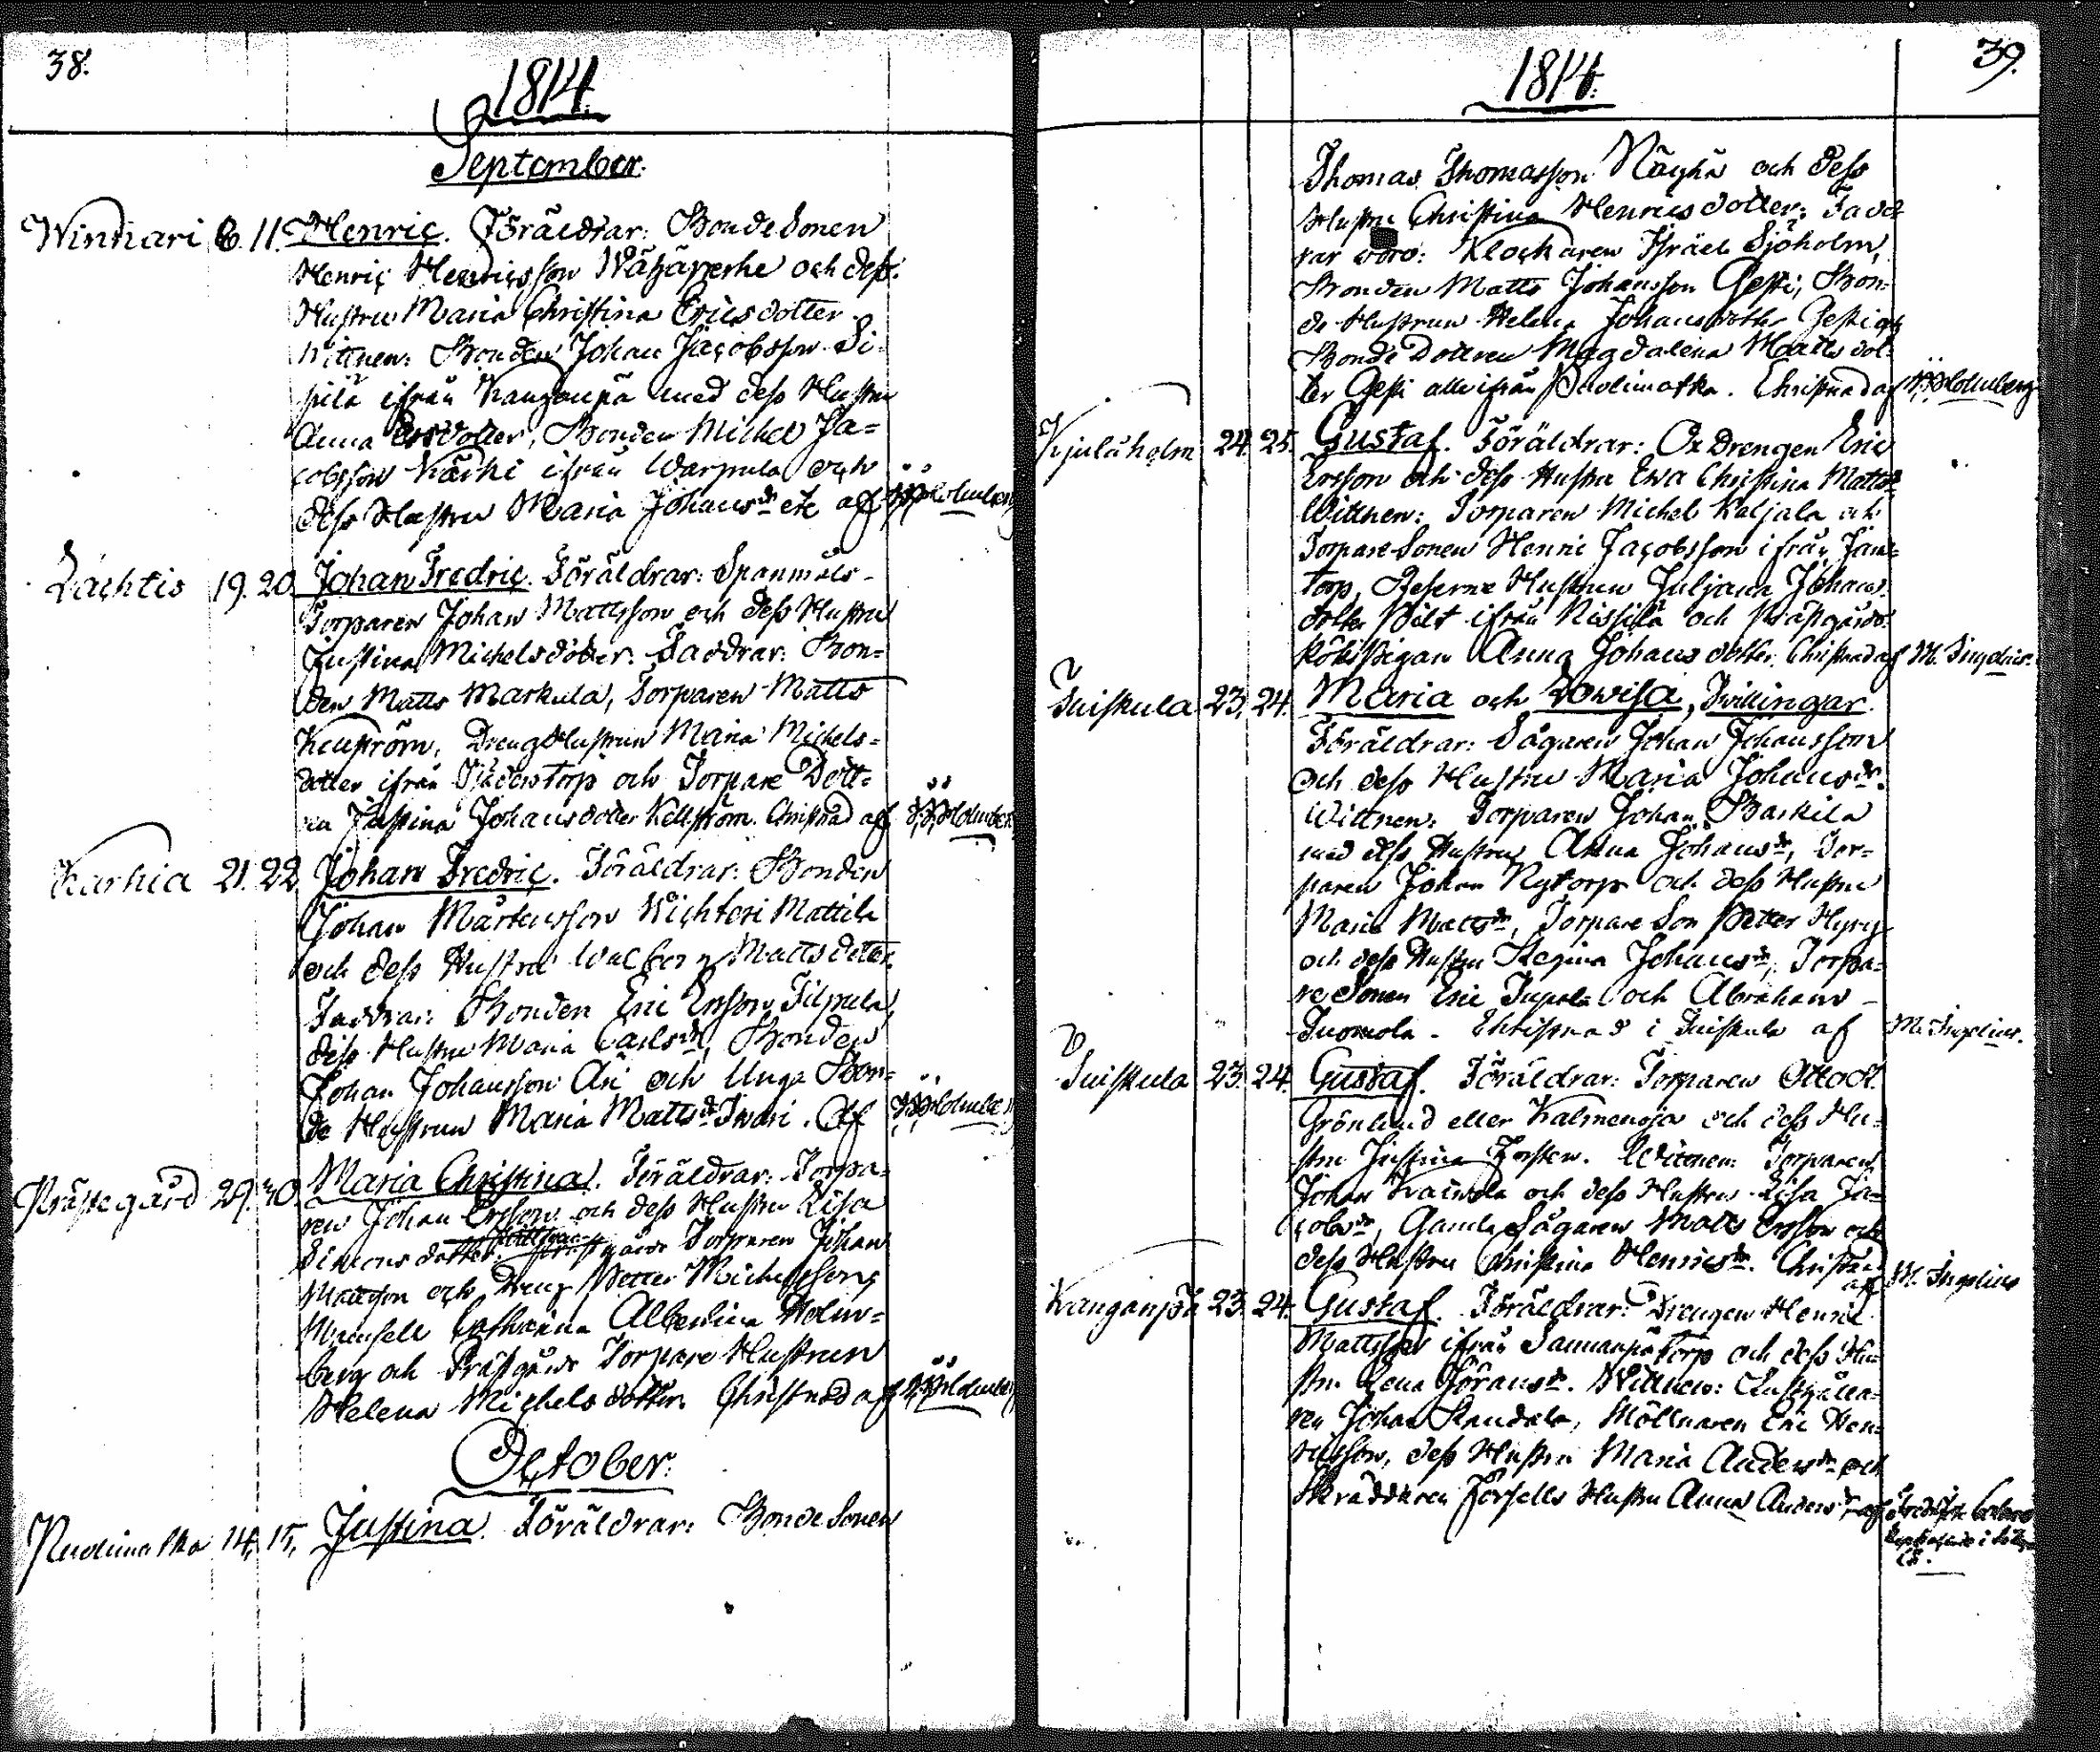 38.
1814.
September.
Winnari 6. 11. Henric. Föräldrar: Bonde Sonen
Henric Henricsson Wähäperhe och dess
Hustru Maria Christina Ericsdotter.
Wittnen: Bonden Johan Jacobsson Si-
pilä ifrån Kanganpä med dess Hustru
Anna Ersdotter, Bonden Michel Ja=
cobsson Kärki ifrån Warpula och
dess Hustru Maria Johansdr etc af Holmberg
Lachtis 19. 20. Johan Fredric. Föräldrar: Spanmåls-
Torparen Johan Mattsson och dess Hustru
Justina Michelsdotter. Faddrar: Bon=
den Matts Markula, Torparen Matts
Dreng Hustrun Maria Michels=
dotter ifrån och Torpare Dott=
ren Justina Johansdotter Kellström. Christnad af Holmberg
Karhia 21. 22. Johan Fredric. Föräldrar: Bonden
Johan Mårtensson Wichteri Mattila
och dess Hustru Walborg Mattsdotter.
Faddrar: Bonden Eric Ersson Filpula,
dess Hustru Maria Carlsdr, Bonden
Johan Johansson Äri och Unga Bon=
de Hustrun Maria Mattsdr Iwari. Af Holmberg
Prästegård 29. 30. Maria Christina. Föräldrar: Torpa=
ren Johan Ersson och dess Hustru Lisa
Simonsdotter. Torparen Johan
Mattsson och Dreng Petter Michelsson,
Mamsell Catharina Albertina Holm=
berg och Prästgårds Torpare Hustrun
Helena Michelsdotter. Christnad af Holmberg
October.
Pudimatka 14. 15. Justina. Föräldrar: Bonde Sonen
39.
1814.
Thomas Thomasson Näyhä och dess
Hustru Christina Henricsdotter: Fadd=
rar woro: Klockaren Israel Sjöholm,
Bonden Matts Johansson Gessi, Bon=
de Hustrun Helena Johansdotter Gessi och
Bonde Dottren Magdalena Matts dot=
ter Gessi alla ifrån Pudimatka. Christnad af Holmberg
Kjuloholm 24. 25. Gustaf. Föräldrar: Ox Drengen Eric
Ersson och dess Hustru Ewa Christina Mattsdr
Wittnen: Torparen Michel Kaljala och
Torpare Sonen Henric Jacobsson ifrån Jan=
torp, Reserve Hustrun Juljana Johans
dotter Pilt ifrån Nissilä och Prästgårds
Kökspigan Anna Johansdotter. Christnad af M. Ingelius.
Tuiskula 23. 24. Maria och Lowisa, Twillingar.
Föräldrar: Sågaren Johan Johansson
och dess Hustru Maria Johansdr.
Wittnen: Torparen Johan Paskila
med dess Hustru Anna Johansdr, Tor=
paren Johan Nytorp och dess Hustru
Maria Mattsdr, Torpare Son Petter Hyry
och dess Hustru Regina Johansdr, Torpa=
re Sonen Eric Tupala och Abraham
Tuomola. Christnad i Tuiskula af M. Ingelius.
Tuiskula 23. 24. Gustaf. Föräldrar: Torparen Otto
Grönlund eller Kalmenoja och dess Hu=
stru Justina Forsten. Wittnen: Torparen
Johan och dess Hustru Lisa Ja=
cobsdr, Gamla Sågaren Matts Ersson och
dess Hustru Christina Henricsdr. Christnad
af M. Ingelius
Kanganpä 23. 24. Gustaf. Föräldrar: Drengen Henric
Mattsson ifrån Sammanpä torp och dess Hu=
stru Lena Göransdr. Wittnen:
ren Johan Randala, Möllnaren Eric Hen=
ricsson, dess Hustru Maria Andersdr och
Skräddaren Forsells Hustru Anna Andersdr af